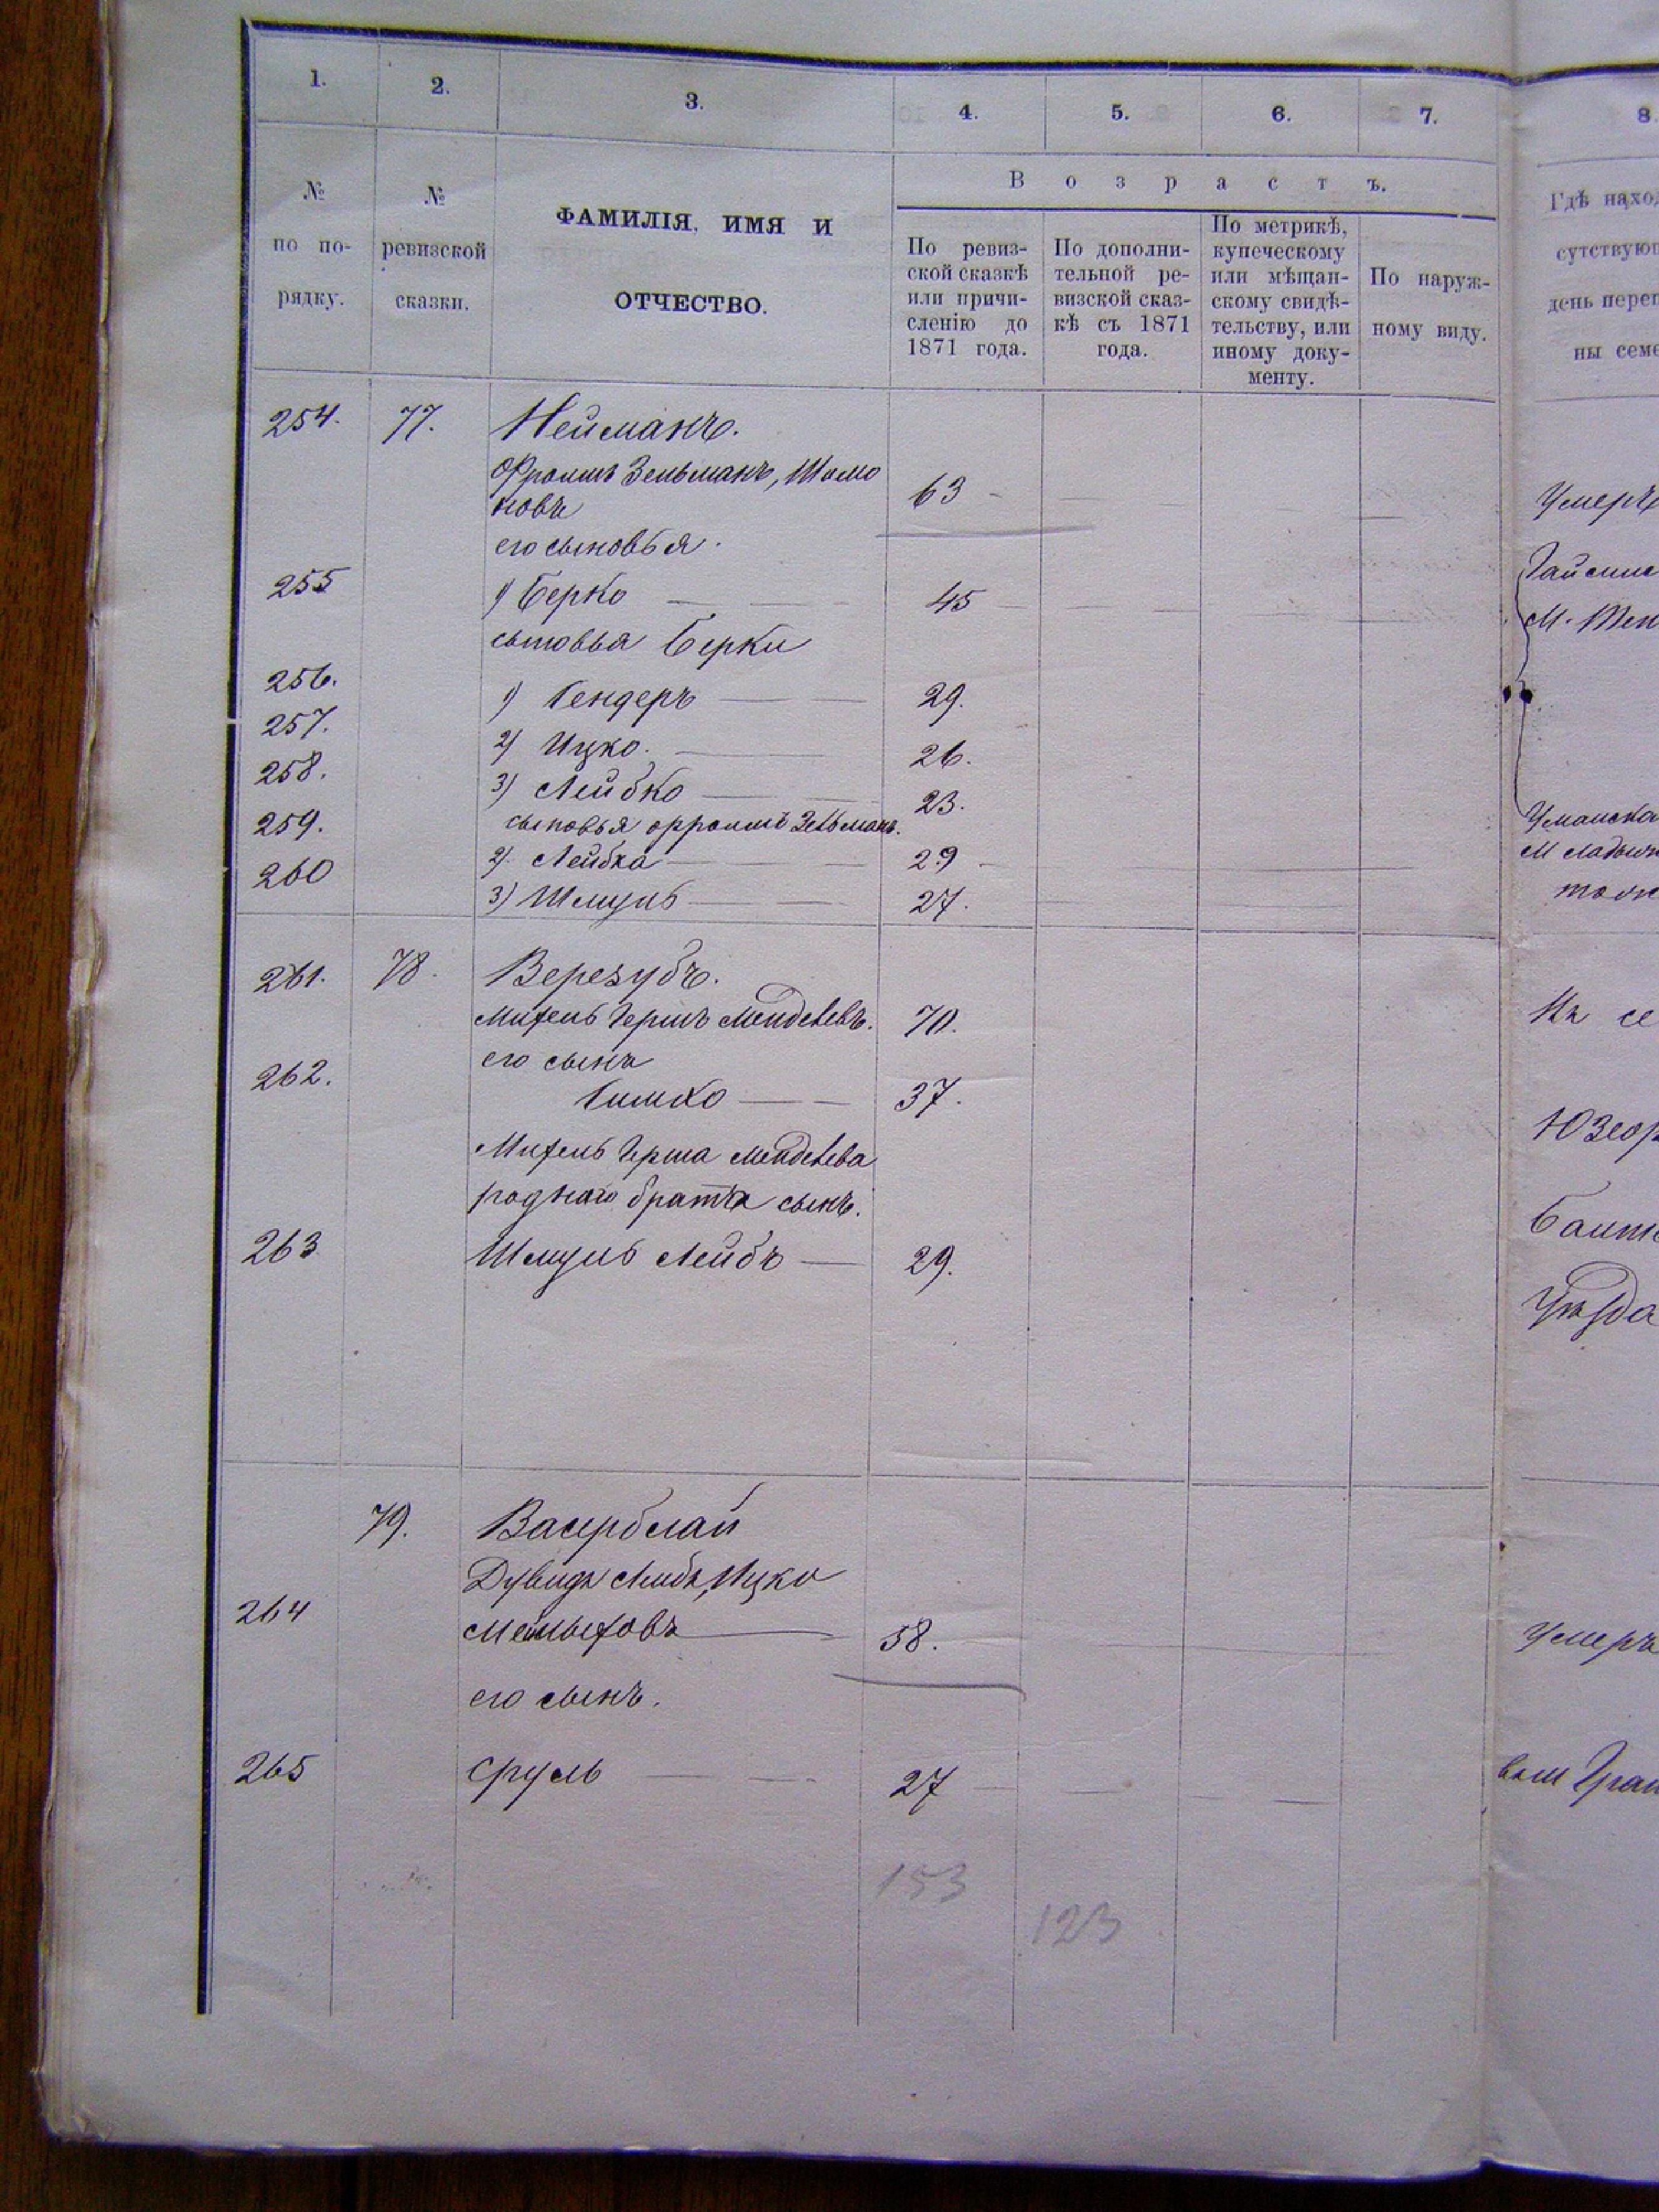 1. 2. 3. 4. 5. 6. 7. 8
№ по по- рядку.
№ ревизской сказки.
ФАМИЛІЯ, ИМЯ И
ОТЧЕСТВО.
Возрастъ.
По ревиз-
ской сказкѣ
или причи-
сленію до
1871 года.
По дополни-
тельной ре-
визской сказ-
кѣ съ 1871
года.
По метрикѣ,
купеческому
или мѣщан-
скому свидѣ-
тельству, или
иному доку-
менту.
По наруж-
ному виду.
Гдѣ наход
сутствую
день переп
ны семе
254. 77. Нейманъ.
Фроимъ Зельманъ, Шомо 63
новъ Умеръ
его сыновья.
255 1) Берко 45 Гайсин
М. Теп
сыновья Берки
256. 1) Бендеръ 29.
257. 2) Ицко. 26.
258. 3) Лейбко 23.
259. сыновья Фроимъ Зельмана. Уманска
2) Лейбка 29
260 3) Шмуль 27.
261. 78. Верезубъ.
Михель Гершъ Менделевъ. 70. Къ се
262. его сынъ
Симхо 37.
Михель Герша Менделева
роднаго брата сынъ.
263 Шмуль Лейбъ 29.
Уѣзда
79. Васерблай
Дувидъ Лейбъ, Ицко
264 58. Умеръ
его сынъ.
265 Сруль 27
153
123